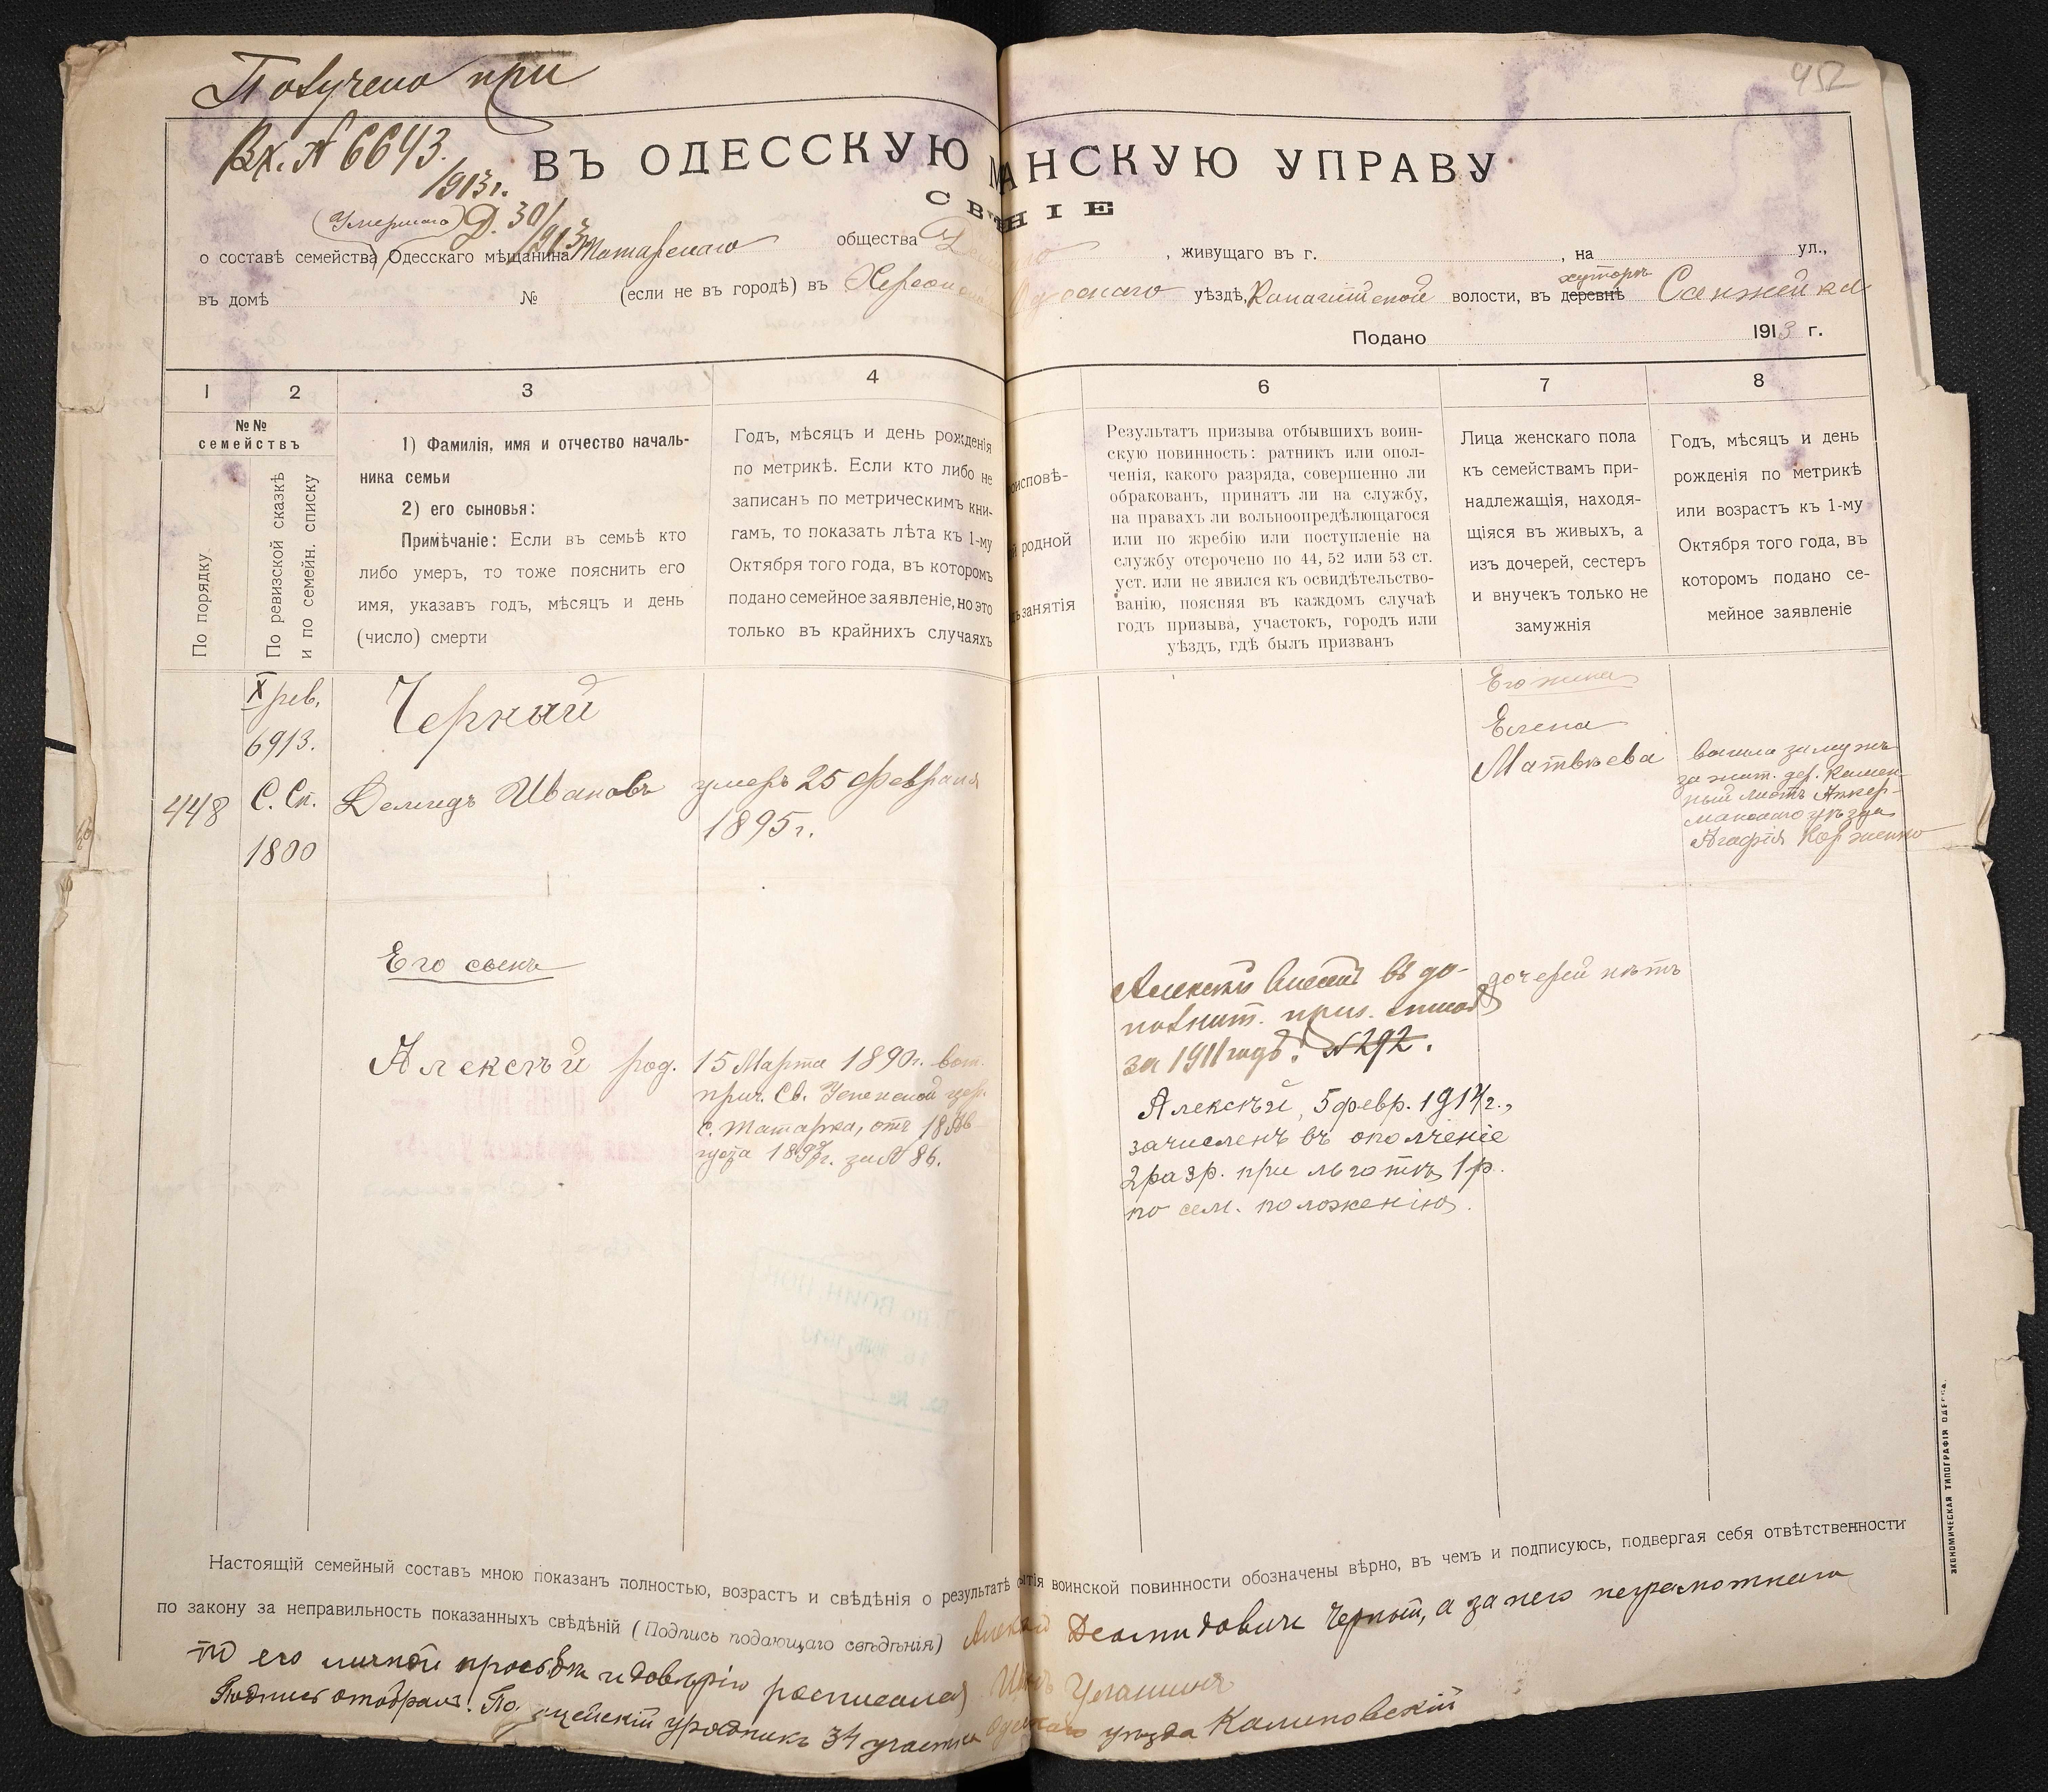 Получено при
452
Вх. № 6643.
1913 г.
ВЪ ОДЕССКУЮ МАНСКУЮ УПРАВУ
(Умершаго) Д. 30/1913 г.
о составѣ семейства Одесскаго мѣщанина Татарскаго общества
, живущаго въ г. , на ул.,
въ домѣ № (если не въ городѣ) въ уѣздѣ, волости, въ деревнѣ хуторѣ Санжейка
Подано 1913 г.
1 2 3 4 6 7 8
№№
семействъ
По порядку
По ревизской сказкѣ
и по семейн. списку
1) Фамилія, имя и отчество началь-
ника семьи
2) его сыновья:
Примѣчаніе: Если въ семьѣ кто
либо умеръ, то тоже пояснить его
имя, указавъ годъ, мѣсяцъ и день
(число) смерти
Годъ, мѣсяцъ и день рожденія
по метрикѣ. Если кто либо не
записанъ по метрическимъ кни-
гамъ, то показать лѣта къ 1-му
Октября того года, въ которомъ
подано семейное заявленіе, но это
только въ крайнихъ случаяхъ
оисповѣ-
й родной
занятія
Результатъ призыва отбывшихъ воин-
скую повинность: ратникъ или опол-
ченія, какого разряда, совершенно ли
обракованъ, принятъ ли на службу,
на правахъ ли вольноопредѣлющагося
или по жребію или поступленіе на
службу отсрочено по 44, 52 или 53 ст.
уст. или не явился къ освидѣтельство-
ванію, поясняя въ каждомъ случаѣ
годъ призыва, участокъ, городъ или
уѣздъ, гдѣ былъ призванъ
Лица женскаго пола
къ семействамъ при-
надлежащія, находя-
щіяся въ живыхъ, а
изъ дочерей, сестеръ
и внучекъ только не
замужнія
Годъ, мѣсяцъ и день
рожденія по метрикѣ
или возрастъ къ 1-му
Октября того года, въ
которомъ подано се-
мейное заявленіе
448
X рев.
6913.
С. Сп.
1800
Черный
Демидъ Ивановъ умеръ 25 февраля
1895 г.
Его жена
Елена
Матвѣева
вышла замужъ
за жит. дер. Камен-
ный мостъ Аккер-
манскаго уѣзда
Его сынъ
Алексѣй род. 15 Марта 1890 г.
прич. Св. Успенской цер.
с. Татарка, отъ 18 Ав-
густа за № 86.
Алексѣй внесенъ въ до-
полнит. приз. списокъ
за 1911 годъ. № 292.
Алексѣй, 5 февр. 1914 г.,
зачисленъ въ ополченіе
2 разр. при льготѣ 1 р.
по сем. положенію.
дочерей нѣтъ
Настоящій семейный составъ мною показанъ полностью, возрастъ и свѣдѣнія о результатѣ тія воинской повинности обозначены вѣрно, въ чемъ и подписуюсь, подвергая себя отвѣтственности
по закону за неправильность показанныхъ свѣдѣній (Подпись подающаго свѣдѣнія) Алексѣй Демидовичъ Черный, а за него неграмотнаго
по его личной просьбѣ и довѣрію росписался
Подпись отобралъ: Полицейскій урядникъ 34 участка Одесскаго уѣзда Калиновскій
ЭКОНОМИЧЕСКАЯ ТИПОГРАФІЯ ОДЕССА.